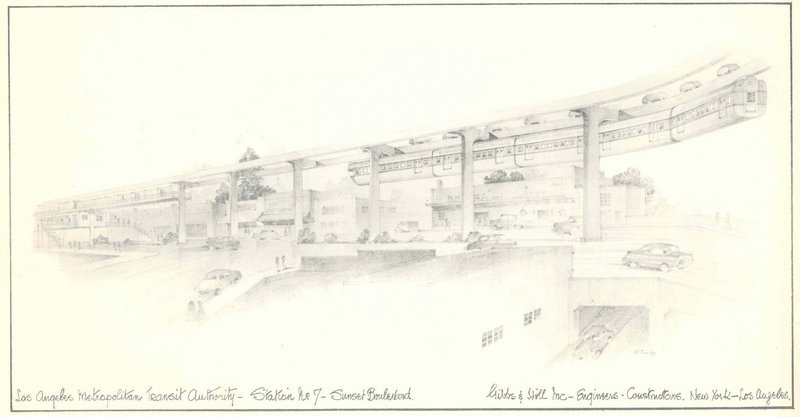 Los Angeles Metropolitan Transit Authority - Station No 7 - Sunset Boulevard.
Gibbs & Hill Inc - Engineers - Constructors. New York - Los Angeles.